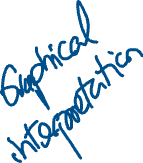 Graphical
interpretation